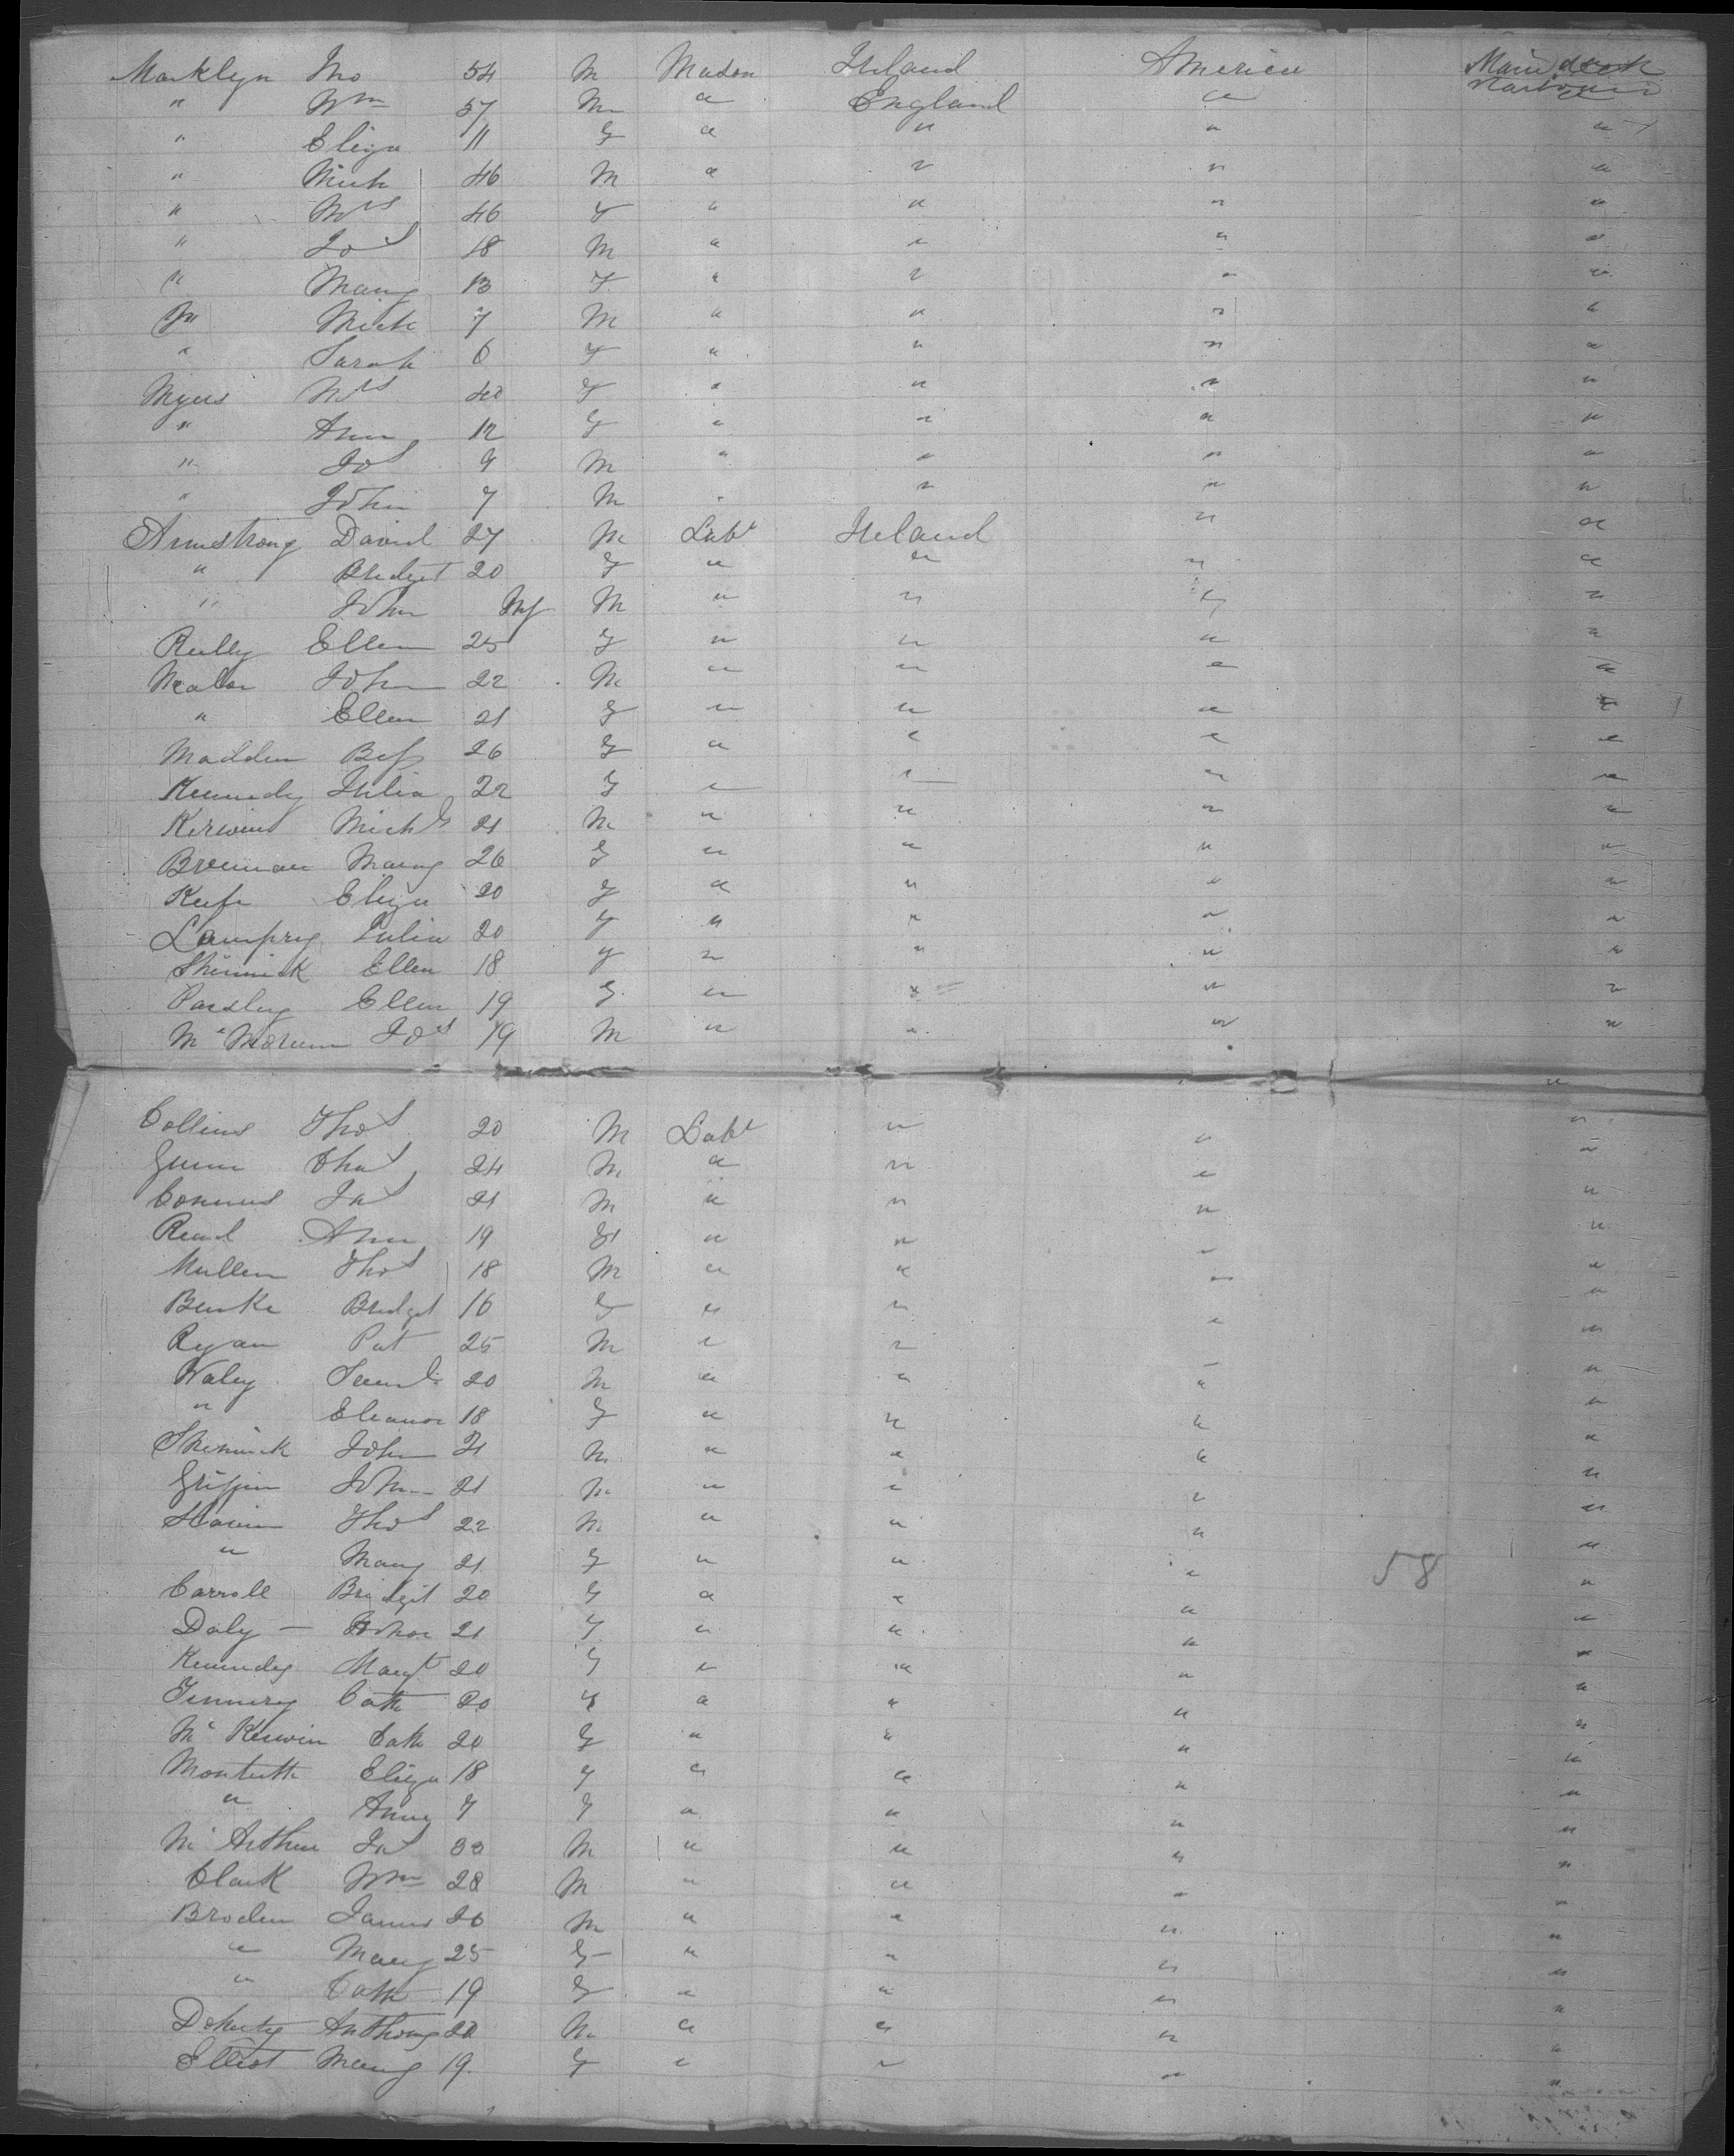 Marklyn Jno 54 M Mason Ireland America Main deck
" Wm 57 M " England " "
" Eliza 11 F " " " "
" Mich 46 M " " " "
" Mrs 46 F " " " "
" Jos 18 M " " " "
" Mary 13 F " " " "
" Mich 7 M " " " "
" Sarah 6 F " " " "
Myers Mrs 40 F " " " "
" Ann 12 F " " " "
" Jos 9 M " " " "
" John 7 M " " " "
Armstrong David 27 M Labr Ireland " "
" Bridget 20 F " " " "
" John Inf M " " " "
Reilly Ellen 25 F " " " "
John 22 M " " " "
" Ellen 21 F " " " "
Madden Bess 26 F " " " "
Kennedy Julia 22 F " " " "
Kirwin Michl 21 M " " " "
Brennan Mary 26 F " " " "
Keefe Eliza 20 F " " " "
Lamprey Julia 20 F " " " "
Shinnick Ellen 18 F " " " "
Parsley Ellen 19 F " " " "
Jos 19 M " " " "
Collins Thos 20 M Labr " " "
Gunn Chas 24 M " " " "
Connus Jas 21 M " " " "
Read Ann 19 F " " " "
Mullen Thos 18 M " " " "
Burke Bridget 16 F " " " "
Ryan Pat 25 M " " " "
Waley Saml 20 M " " " "
" Eleanor 18 F " " " "
Shinnick John 21 M " " " "
Griffin John 21 M " " " "
Thos 22 M " " " "
" Mary 21 F " " " " 58
Carroll Bridget 20 F " " " "
Daly — 21 F " " " "
Kennedy Margt 20 F " " " "
Finnerey Cath 20 F " " " "
Mc Kerwin Cath 20 F " " " "
Montieth Eliza 18 F " " " "
" Anny 7 F " " " "
Mc Arthur Jas 33 M " " " "
Clark Wm 28 M " " " "
Broden James 26 M " " " "
" Mary 25 F " " " "
" Cath 19 F " " " "
Doherty Anthony 20 M " " " "
Elliot Mary 19 F " " " "